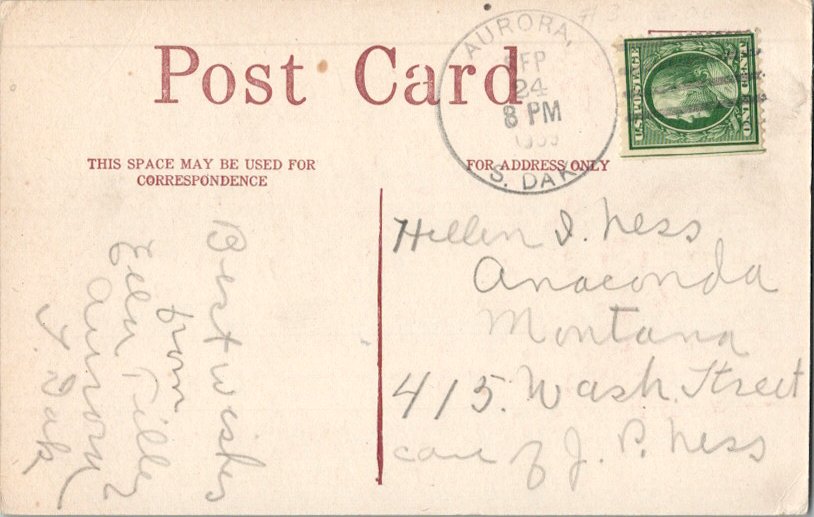 Post Card
AURORA,
SEP
24
8 PM
S. DAK
U.S. POSTAGE
ONE CENT
THIS SPACE MAY BE USED FOR
CORRESPONDENCE
FOR ADDRESS ONLY
Hellen I. Ness
Anaconda
Montana
415. Wash. Street
care of J. P. Ness
Best wishes
from
Ella
Aurora
S Dak